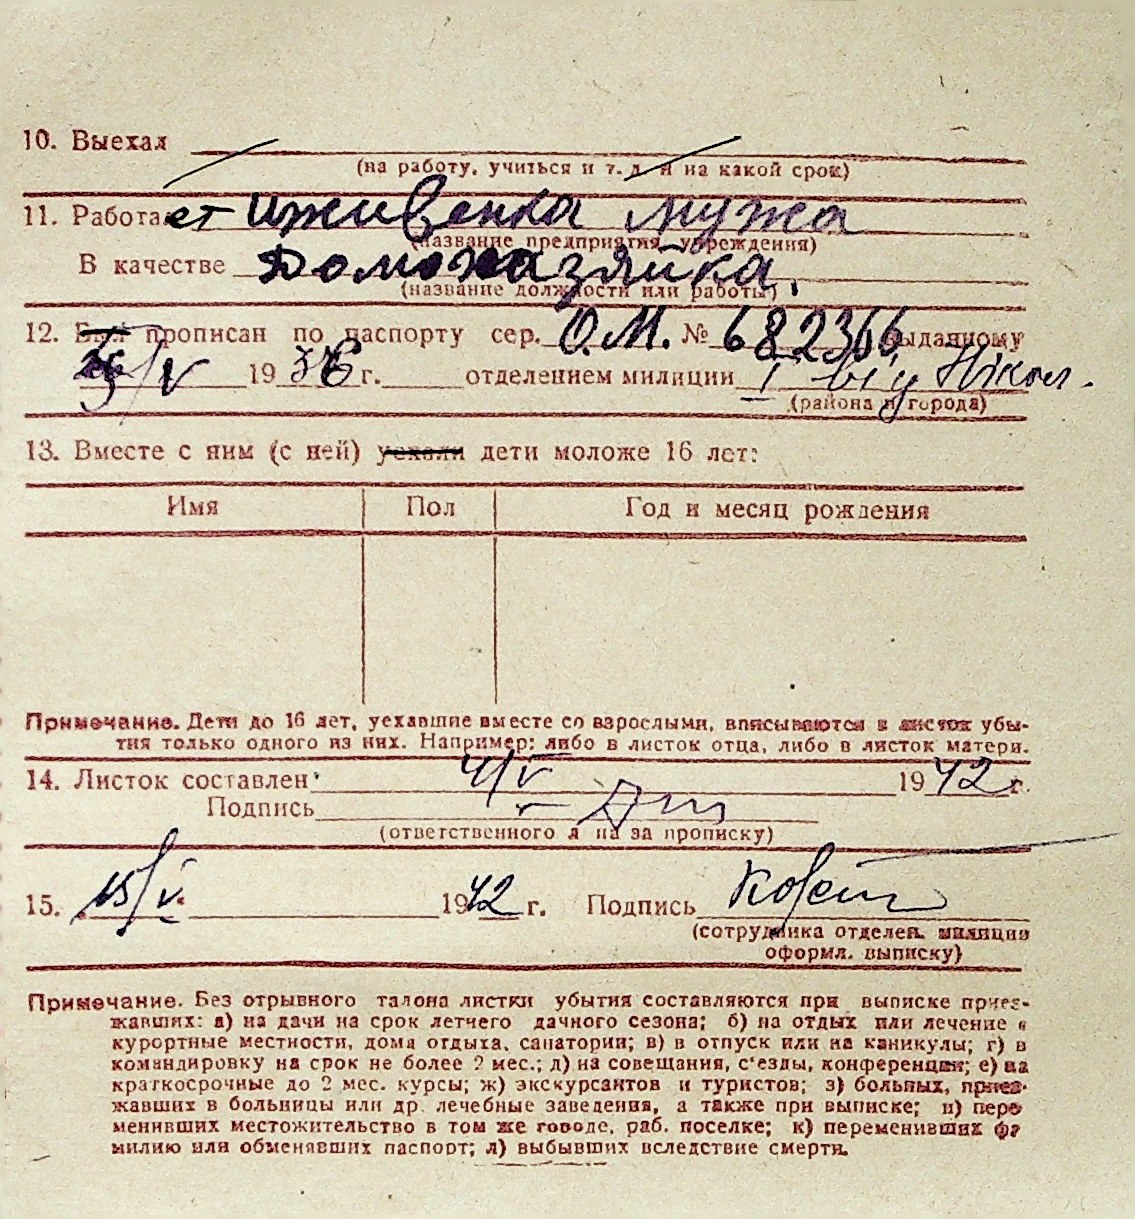 10. Выехал
(на работу, учиться и т. д. и на какой срок)
11. Работает иживенка мужа
(название предприятия, учреждения)
В качестве Домохазяйка.
(название должности или работы)
12. Был прописан по паспорту сер. О.М. № 682366 выданному
/V 1936 г. отделением милиции I від Нікол.
(района и города)
13. Вместе с ним (с ней) уехали дети моложе 16 лет:
Имя Пол Год и месяц рождения
Примечание. Дети до 16 лет, уехавшие вместе со взрослыми, вписываются в листок убы-
тия только одного из них. Например: либо в листок отца, либо в листок матери.
14. Листок составлен 4/V 1942 г.
Подпись
(ответственного л на за прописку)
15. 15/V. 1942 г. Подпись
(сотрудника отделен. милиции
оформл. выписку)
Примечание. Без отрывного талона листки убытия составляются при выписке приез-
жавших: а) на дачи на срок летнего дачного сезона; б) на отдых или лечение в
курортные местности, дома отдыха, санатории; в) в отпуск или на каникулы; г) в
командировку на срок не более 2 мес.; д) на совещания, с'езды, конференции; е) на
краткосрочные до 2 мес. курсы; ж) экскурсантов и туристов; з) больных, приез-
жавших в больницы или др. лечебные заведения, а также при выписке; и) пере
менивших местожительство в том же городе, раб. поселке; к) переменивших фа
милию или обменявших паспорт; л) выбывших вследствие смерти.